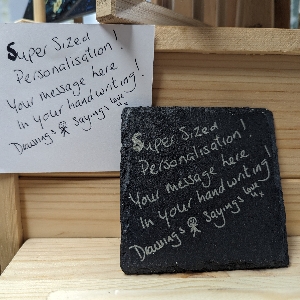 Super Sized
Personalisation!
Your message here
In your handwriting!
Drawings Sayings Love u x
Super Sized
Personalisation!
Your message here
In your handwriting!
Drawings Sayings Love u x